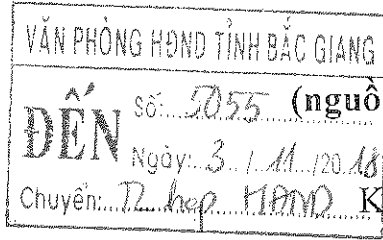 VĂN PHÒNG HĐND TỈNH BẮC GIANG
ĐẾN
Số: 5055
(nguồ
Ngày: 3 / 11 /2018
Chuyển: họp HĐND
K